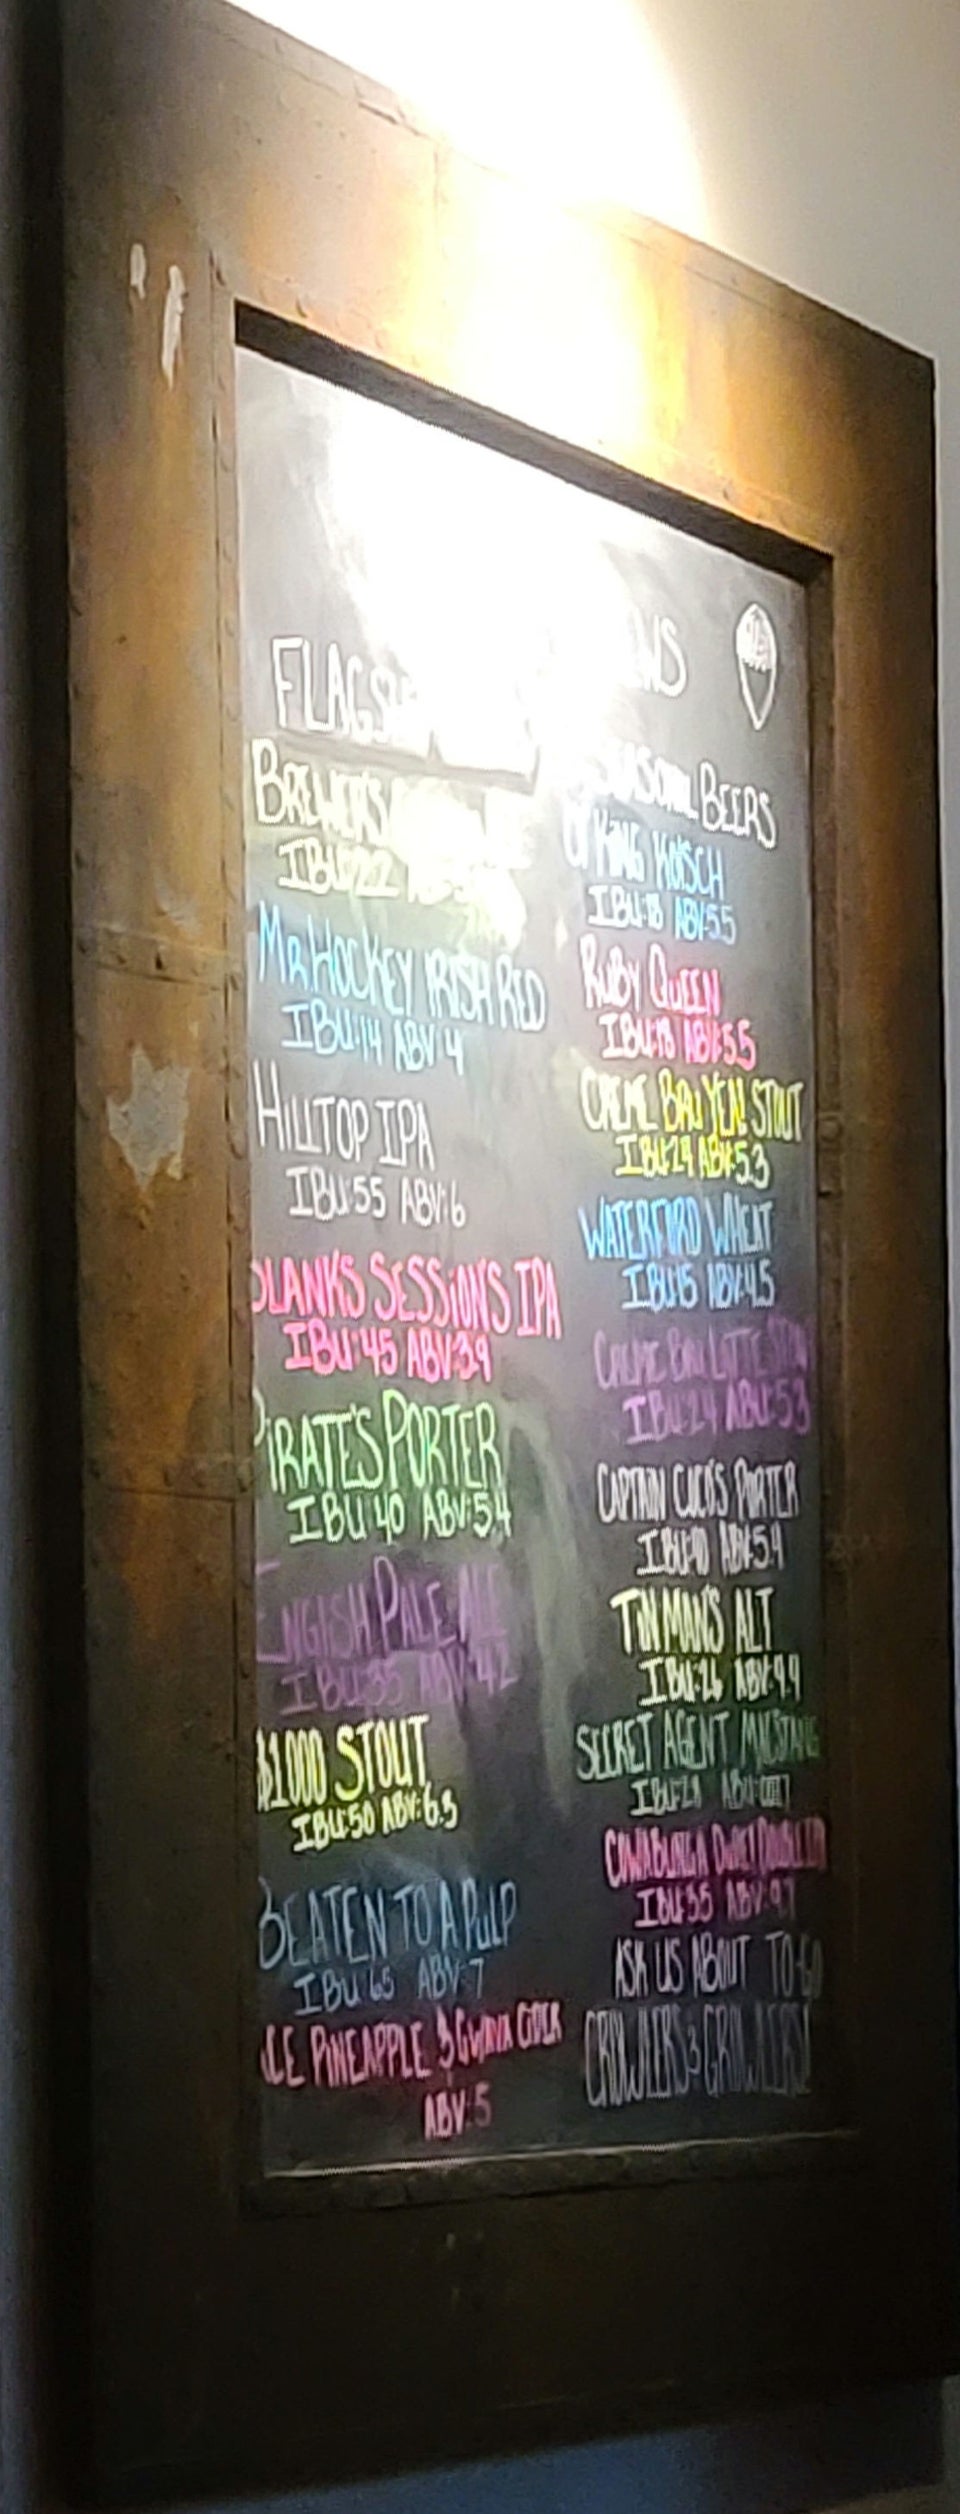 BREWERS
IBU:22
MR. HOCKEY IRISH RED
IBU:14 ABV 4
HILLTOP IPA
IBU:55 ABV:6
SESSIONS IPA
IBU:45 ABV:3.9
PIRATE'S PORTER
IBU:40 ABV:5.4
ENGLISH PALE ALE
IBU:35 ABV:4.2
$1000 STOUT
IBU:50 ABV:6.3
BEATEN TO A PULP
IBU:65 ABV:7
PINEAPPLE & CIDER
ABV:5
SEASONAL BEERS
KING
IBU:18 ABV:5.5
RUBY QUEEN
IBU:18 ABV:5.5
STOUT
IBU:24 ABV:5.3
WATERFORD WHEAT
IBU:15 ABV:4.5
IBU:24 ABV:5.3
CAPTAIN COCO'S PORTER
IBU:40 ABV:5.4
TIN MAN'S ALT
IBU:26 ABV:4.4
SECRET AGENT
COWABUNGA
IBU:35
ASK US ABOUT TO-GO
CROWLERS & GROWLERS!